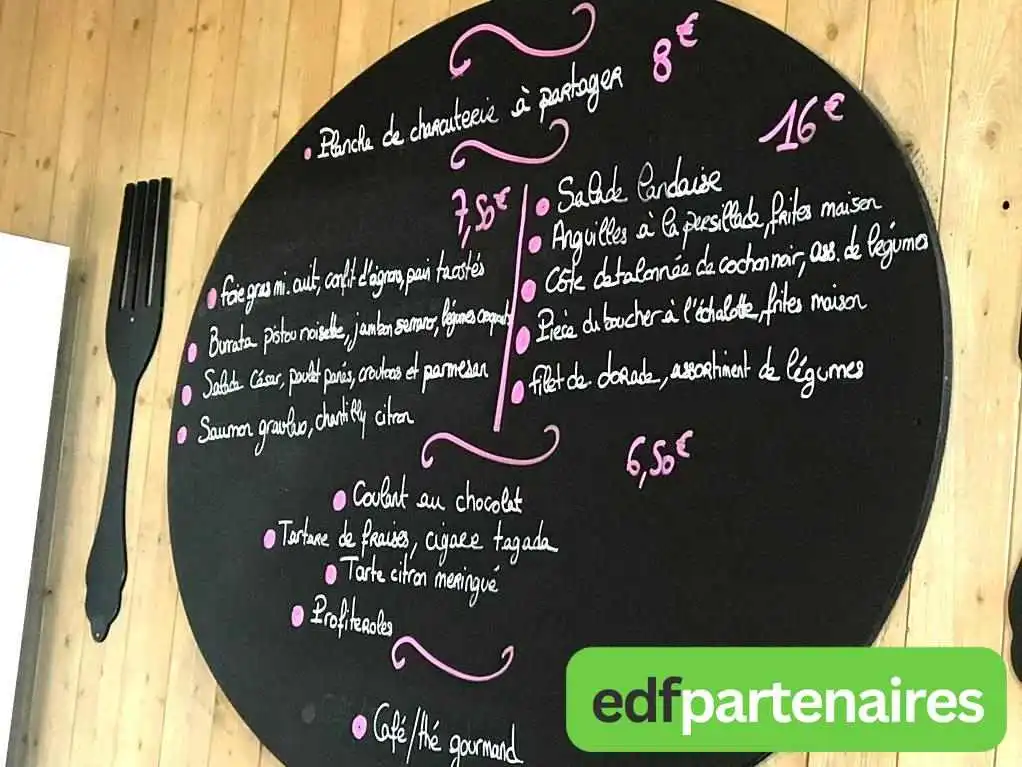 Planche de charcuterie à partager 8€
7,50€
foie gras mi-cuit, confit d'oignons, pain toastés
Burrata pistou noisette, jambon serrano, légumes croquants
Salade César, poulet panés, croutons et parmesan
Saumon gravlax, chantilly citron
16€
Salade Landaise
Anguilles à la persillade, frites maison
Côte de cochon noir, ass. de légumes
Pièce du boucher à l'échalotte, frites maison
filet de dorade, assortiment de légumes
6,50€
Coulant au chocolat
Tartare de fraises, cigare tagada
Tarte citron meringué
Profiteroles
Café/thé gourmand
edfpartenaires